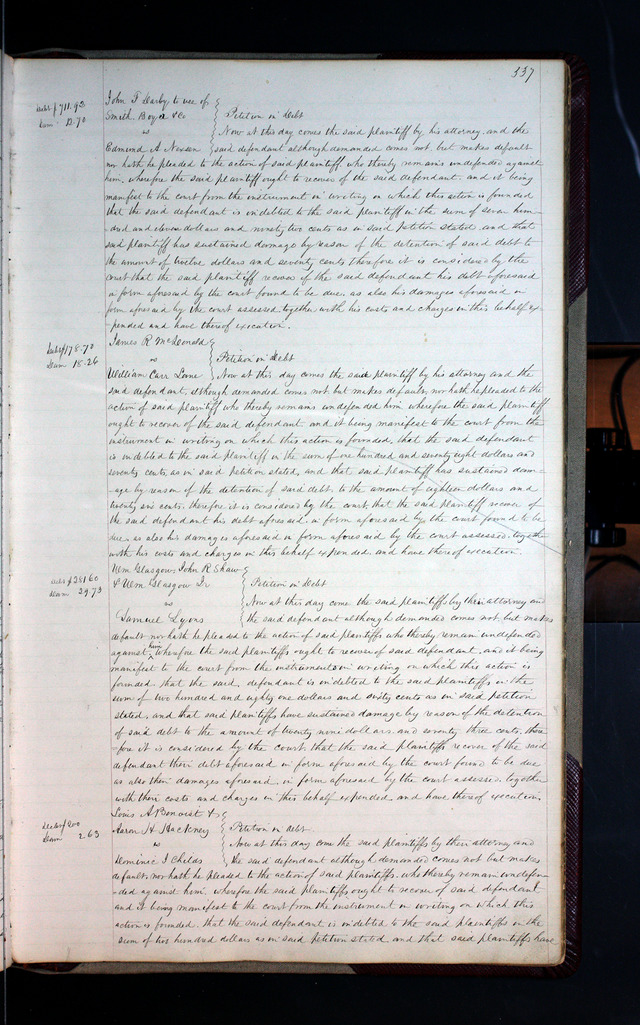 337
John F Darby to use of
Debt $ 711.92
Smith Boyd & Co Petition in Debt
Dam 12.70
vs Now at this day comes the said plaintiff by his attorney and the
Edmund A said defendant although demanded comes not but makes default
nor hath he pleaded to the action of said plaintiff who thereby remains undefended against
him. wherefore the said plaintiff ought to recover of the said defendant. and it being
manifest to the court from the instrument in writing on which this action is founded
that the said defendant is indebted to the said plaintiff in the sum of seven hun-
dred and eleven dollars and ninety two cents as in said petition stated and that
said plaintiff has sustained damage by reason of the detention of said debt to
the amount of twelve dollars and seventy cents therefore it is considered by the
court that the said plaintiff recover of the said defendant his debt aforesaid
in form aforesaid by the court found to be due, as also his damages aforesaid in
form aforesaid by the court assessed, together with his costs and charges in this behalf ex-
pended and have thereof execution.
James R McDonald
Debt $ 178.70
vs Petition in Debt
Dam 18.26
William Carr Lane Now at this day comes the said plaintiff by his attorney and the
said defendant, although demanded comes not but makes default, nor hath he pleaded to the
action of said plaintiff who thereby remains undefended him wherefore the said plaintiff
ought to recover of the said defendant and it being manifest to the court from the
instrument in writing on which this action is founded, that the said defendant
is indebted to the said plaintiff in the sum of one hundred and seventy eight dollars and
seventy cents, as in said petition stated, and that said plaintiff has sustained dam-
-age by reason of the detention of said debt, to the amount of eighteen dollars and
twenty six cents, therefore it is considered by the court, that the said plaintiff recover of
the said defendant his debt aforesaid, in form aforesaid by the court found to be
due, as also his damages aforesaid in form aforesaid by the court assessed, together
with his costs and charges in this behalf expended, and have thereof execution.
Wm Glasgow, John R Shaw
Debt $ 281.60
& Wm Glasgow Jr Petition in Debt
Dam 29.73
vs Now at this day come the said plaintiffs by their attorney and
Samuel Lyons the said defendant although demanded comes not, but makes
default nor hath he pleaded to the action of said plaintiffs who thereby remain undefended
against him wherefore the said plaintiffs ought to recover of said defendant, and it being
manifest to the court from the instrument in writing on which this action is
founded, that the said, defendant is indebted to the said plaintiffs in the
sum of two hundred and eighty one dollars and sixty cents as in said petition
stated, and that said plaintiffs have sustained damage by reason of the detention
of said debt to the amount of twenty nine dollars and seventy three cents, there
fore it is considered by the court, that the said plaintiffs recover of the said
defendant their debt aforesaid in form aforesaid by the court found to be due
as also their damages aforesaid, in form aforesaid by the court assessed, together
with their costs and charges in this behalf expended and have thereof execution.
Louis A Benoist &
Debt $ 200
Aaron H Hackney Petition in Debt.
Dam 2.63
vs Now at this day come the said plaintiffs by their attorney and
Deminic J Childs the said defendant although demanded comes not but makes
default, nor hath he pleaded to the action of said plaintiffs, who thereby remain undefen-
-ded against him, wherefore the said plaintiffs ought to recover of said defendant
and it being manifest to the court from the instrument in writing on which this
action is founded, that the said defendant is indebted to the said plaintiffs in the
sum of two hundred dollars as in said petition stated and that said plaintiffs have